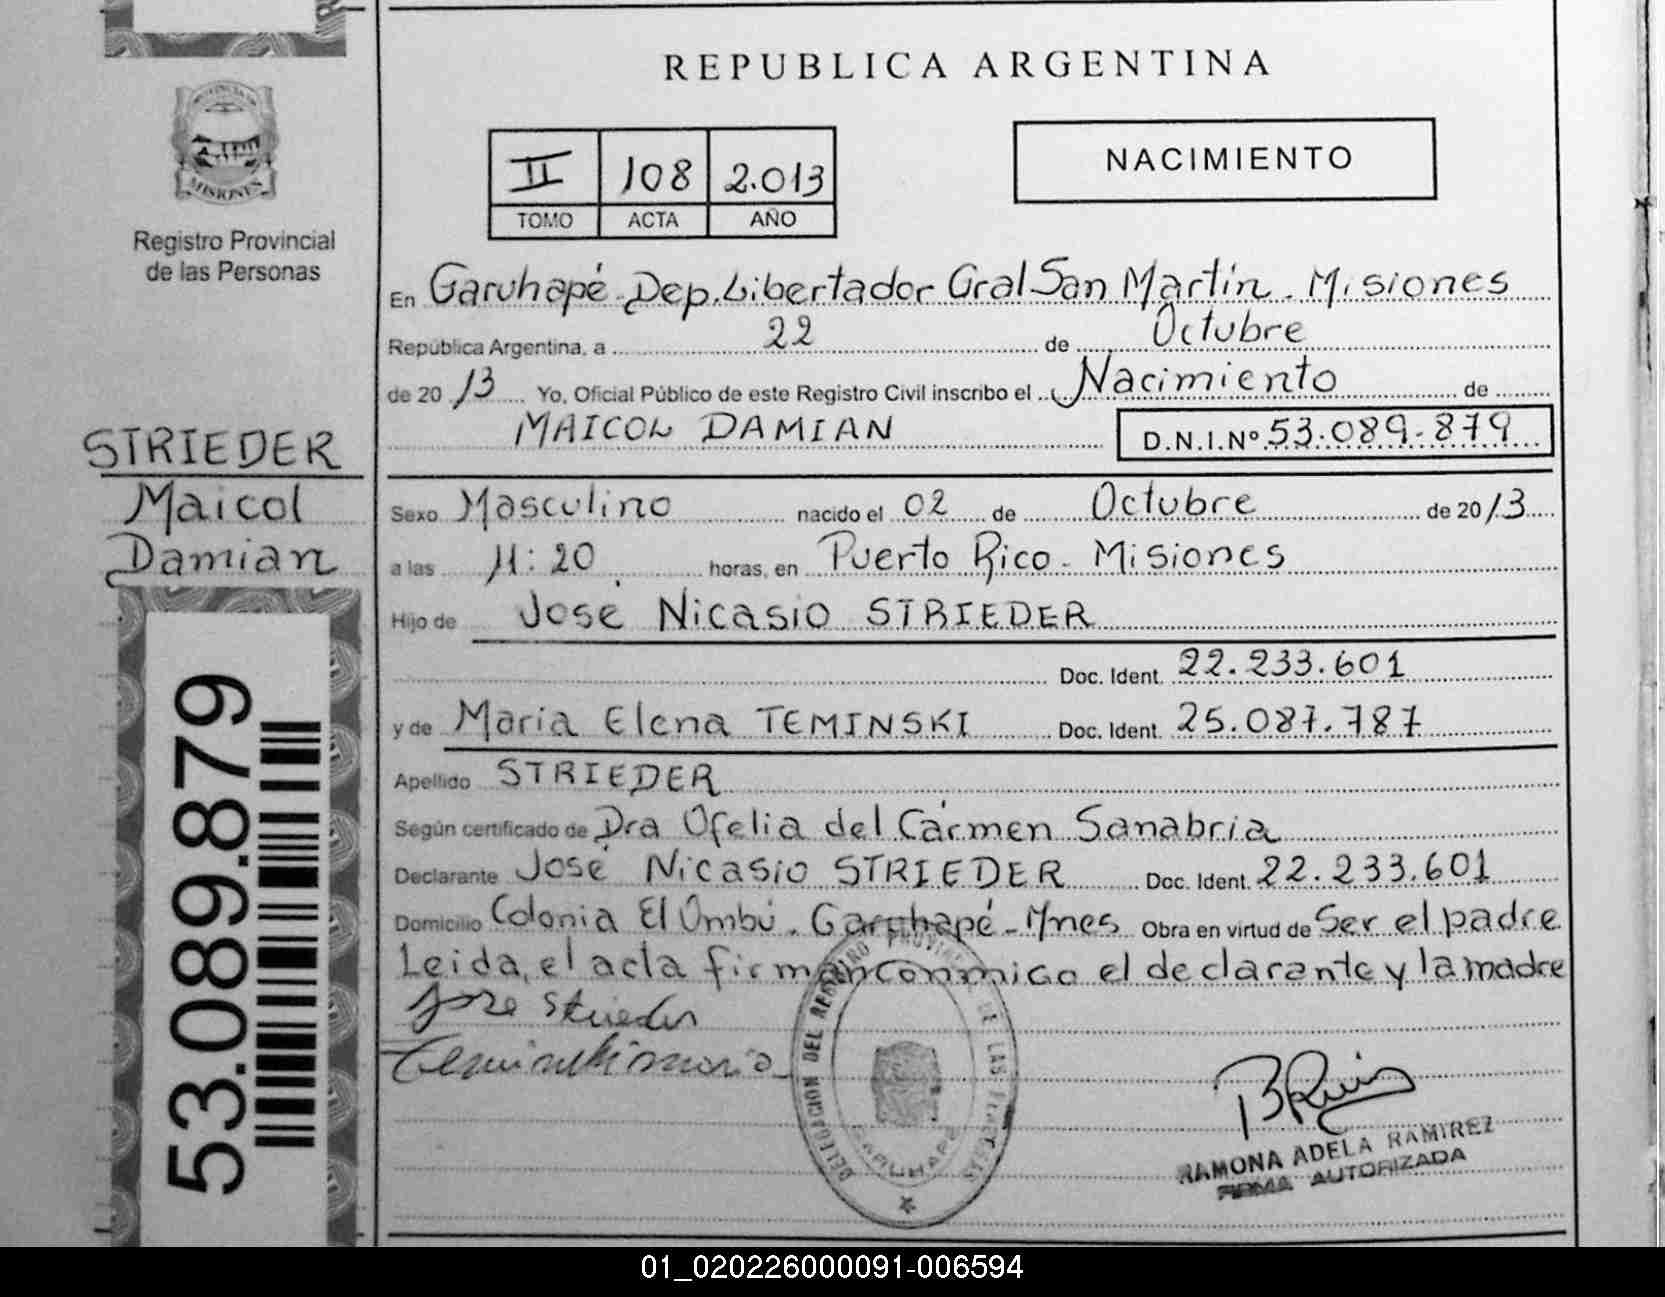 REPUBLICA ARGENTINA
II 108 2.013
TOMO ACTA AÑO
NACIMIENTO
PROVINCIA DE
MISIONES
Registro Provincial
de las Personas
STRIEDER
Maicol
Damian
53.089.879
En Garuhapé Dep. Libertador Gral San Martín. Misiones
República Argentina, a 22 de Octubre
de 20 13 Yo, Oficial Público de este Registro Civil inscribo el Nacimiento de
MAICOL DAMIAN D.N.I.Nº 53.089.879
Sexo Masculino nacido el 02 de Octubre de 20 13
a las 11:20 horas, en Puerto Rico - Misiones
Hijo de José Nicasio STRIEDER
Doc. Ident. 22.233.601
y de Maria Elena TEMINSKI Doc. Ident. 25.087.787
Apellido STRIEDER
Según certificado de Dra Ofelia del Cármen Sanabria
Declarante José Nicasio STRIEDER Doc. Ident. 22.233.601
Domicilio Colonia El Ombú. Garuhapé - Mnes Obra en virtud de Ser el padre
Leida, el acta firman conmigo el declarante y la madre
Jose Strieder
Teminski maria
DELEGACION DEL REGISTRO PROVINCIAL DE LAS PERSONAS
GARUHAPE
RAMONA ADELA RAMIREZ
FIRMA AUTORIZADA
01_020226000091-006594